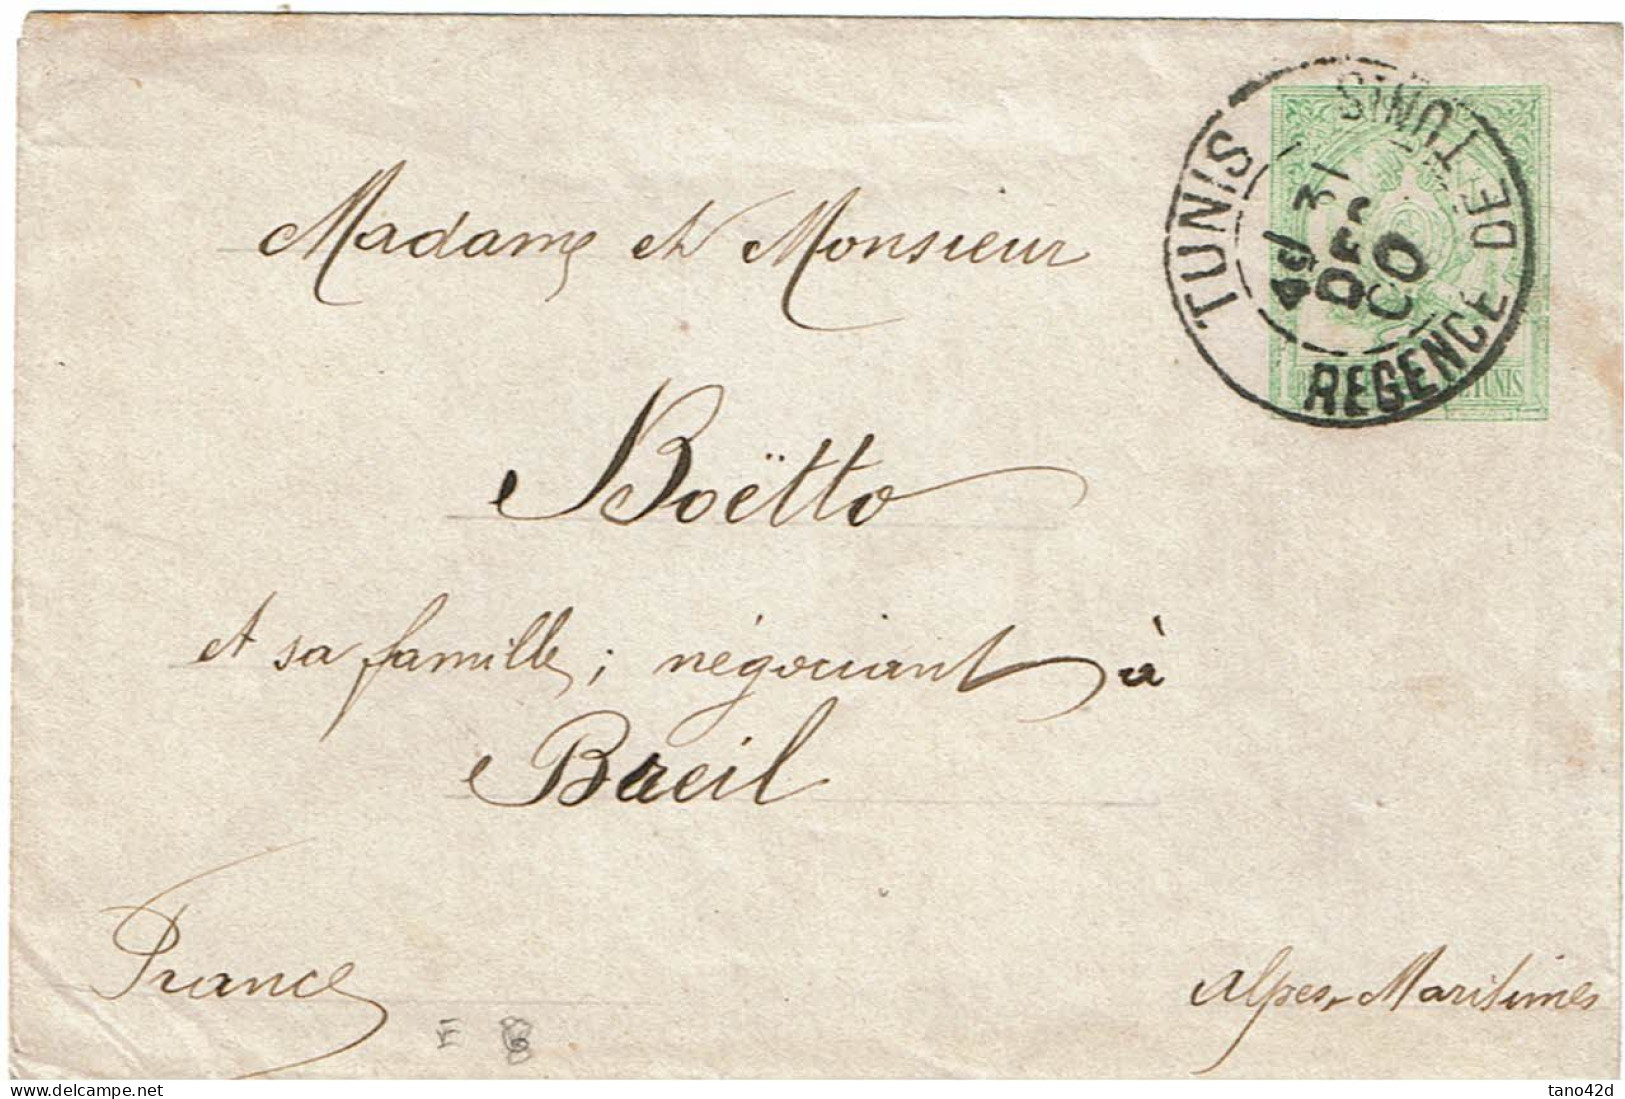 TUNIS
REGENCE DE TUNIS
4E/ 31
DEC
00
TUNIS
Madame et Monsieur
Boëtto
et sa famille; négociant à
Breil
France
Alpes-Maritimes
E
delcampe.net
tano42d